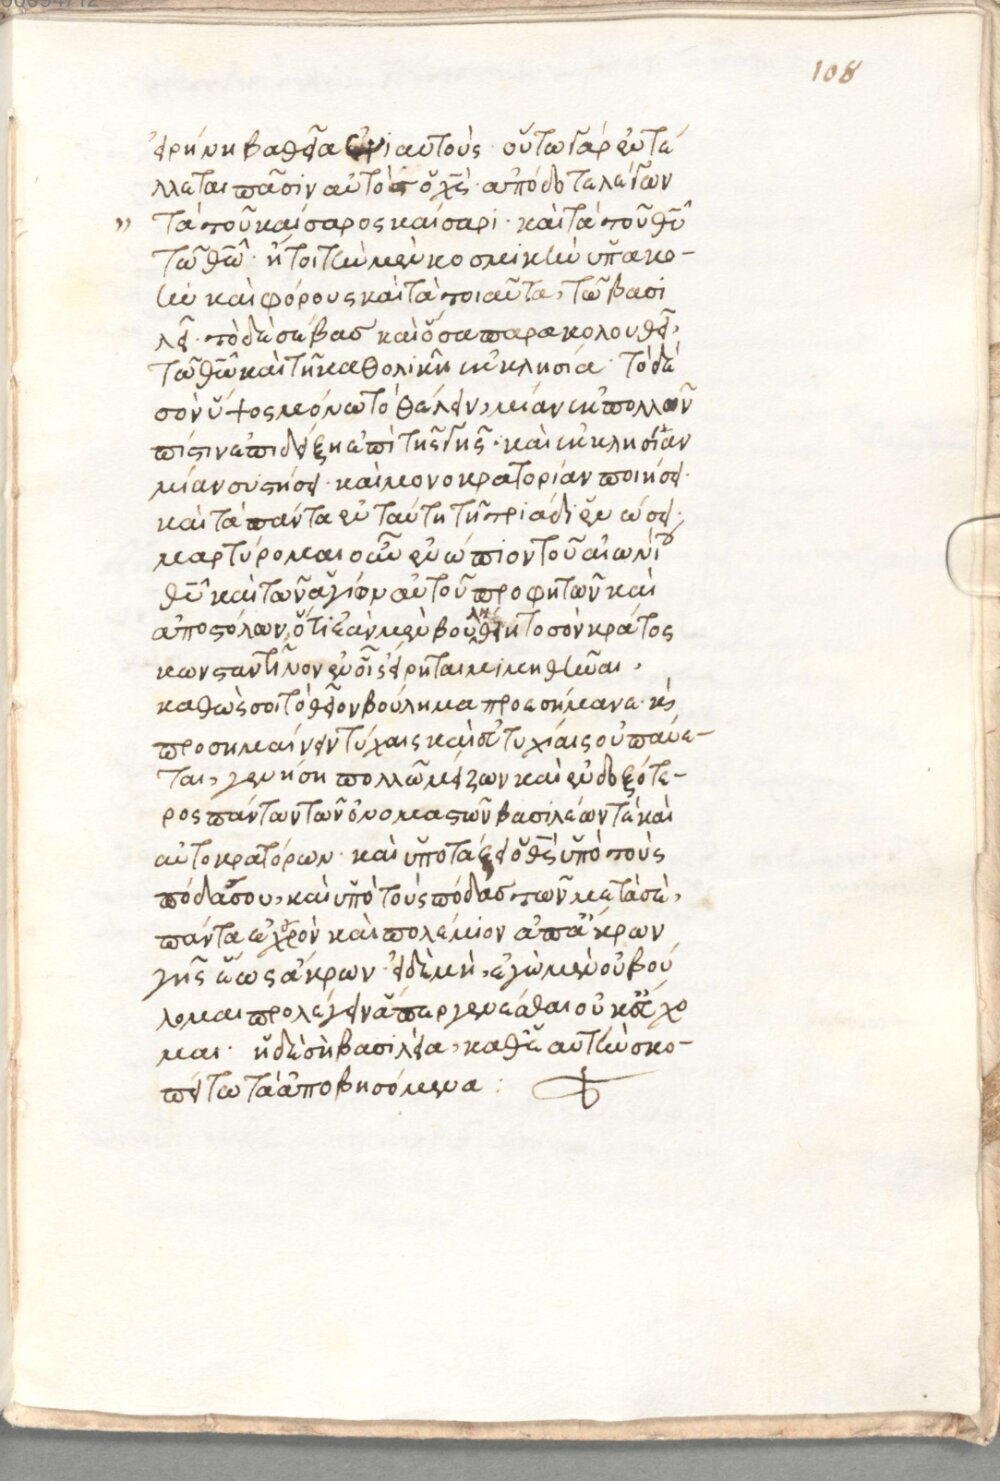 108
εἰρήνη βαθεῖα αὐτούς· οὕτω γὰρ ἐντέ
λλεται πᾶσιν αὐτὸς ὁ χς· ἀπόδοτε λέγων
" τὰ τοῦ καίσαρος καίσαρι· καὶ τὰ τοῦ θυ
τῶ θω· ἤτοι τὴν μὲν κοσμικὴν ὑπακο-
ὴν καὶ φόρους καὶ τὰ τοιαῦτα, τῶ βασι
λεῖ· τὸ δὲ σέβας καὶ ὅσα παρακολουθεῖ,
τῶ θω καὶ τῆ καθολικῆ ἐκκλησία· τὸ δὲ
σὸν ὕψος μόνω τὸ θέλειν, μίαν ἐκ πολλῶν
πίστιν ἐπιδείξη ἐπὶ τῆς γῆς· καὶ ἐκκλησίαν
μίαν συστήσει· καὶ μονοκρατορίαν ποιήσει·
καὶ τὰ πάντα ἐν ταύτη τῆ τριάδι ἑνώσει·
μαρτύρομαι οὖν ἐνώπιον τοῦ αἰωνίου
θυ καὶ τῶν ἁγίων αὐτοῦ προφητῶν καὶ
ἀποστόλων, ὅτι ἐὰν μὲν βουληθείη τὸ σὸν κράτος
κωνσταντῖνον ἐν οἷς εἴρηται μιμηθῆναι,
καθὼς σοι τὸ θεῖον βούλημα προεσήμανε κὶ
προσημαίνειν τύχαις καὶ εὐτυχίαις οὐ παύε-
ται, γενήση πολλῶ μείζων καὶ ἐνδοξότε-
ρος πάντων τῶν ὀνομαστῶν βασιλέων τὲ καὶ
αὐτοκρατόρων· καὶ ὑποτάξει ὁ θς ὑπὸ τοὺς
πόδας σου, καὶ ὑπὸ τοὺς πόδας τῶν μετὰ σὲ,
πάντα ἐχθρὸν καὶ πολέμιον ἀπ' ἄκρων
γῆς ἕως ἄκρων· εἰ δὲ μὴ, ἐγὼ μὲν οὐ βού
λομαι προλέγειν ἅπερ γενέσθαι οὐκ εὔχο
μαι· ἡ δὲ σὴ βασιλεία, καθ' ἑαυτὴν σκο-
πείτω τὰ ἀποβησόμενα :